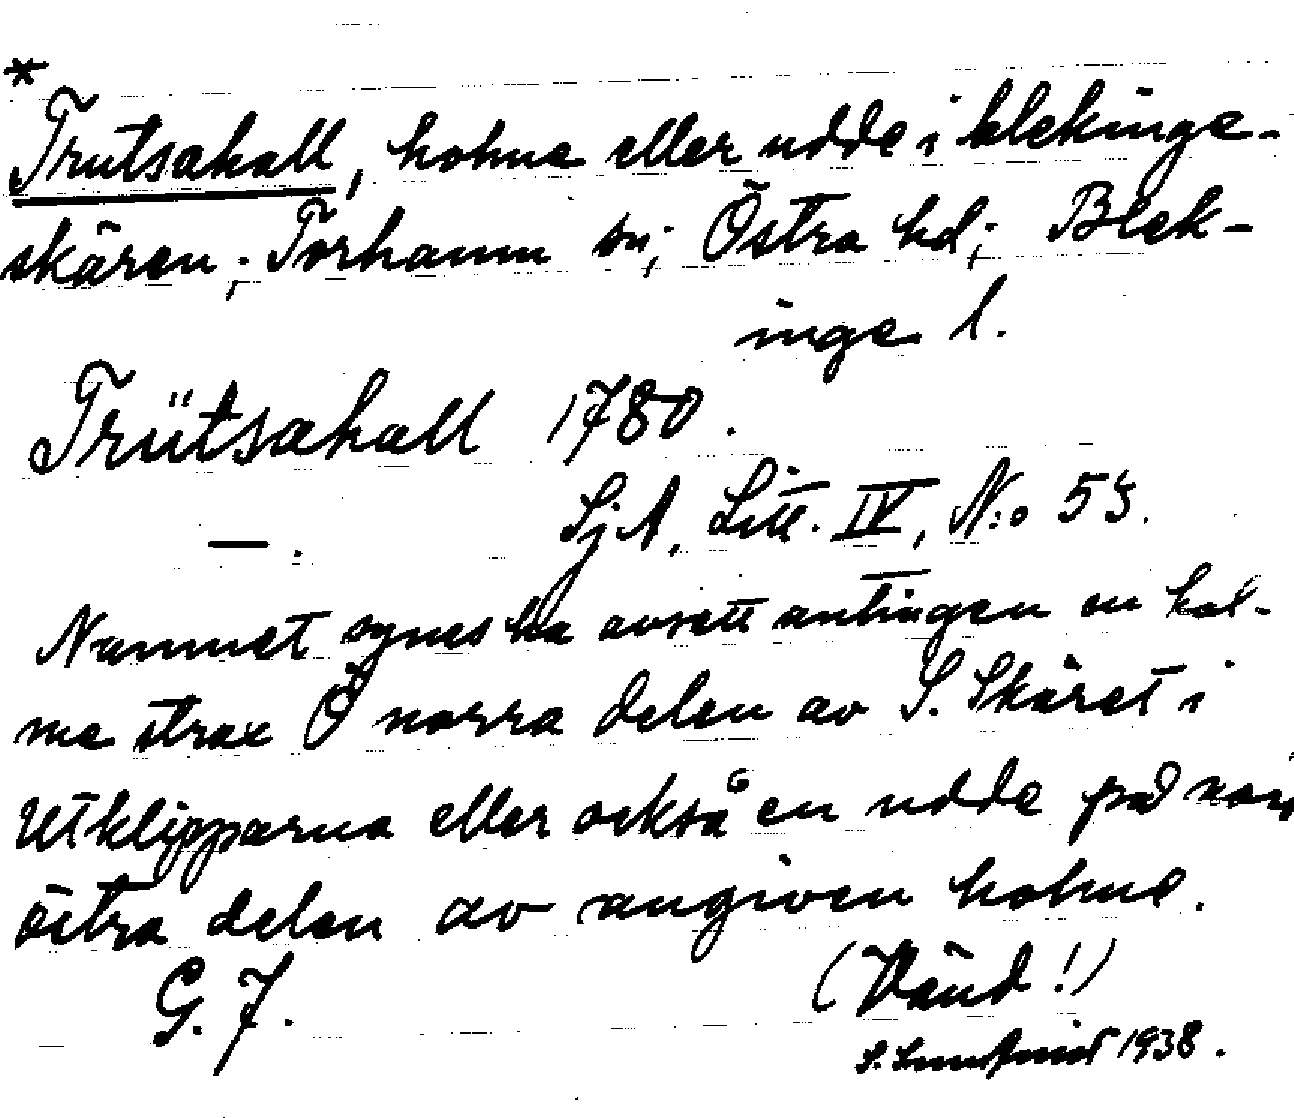 *
Trutsahall, holme eller udde i blekinge-
skären; Torhamn sn; Östra hd; Blek-
inge l.
Trütsahall 1780.
SjA, Litt. IV, N:o 53.
— .
Namnet synes ha avsett antingen en hol-
me strax Ö norra delen av S. Skäret i
Utklipporna eller också en udde på
östra delen av angiven holme.
G. J.
(Vänd!)
S. 1938.